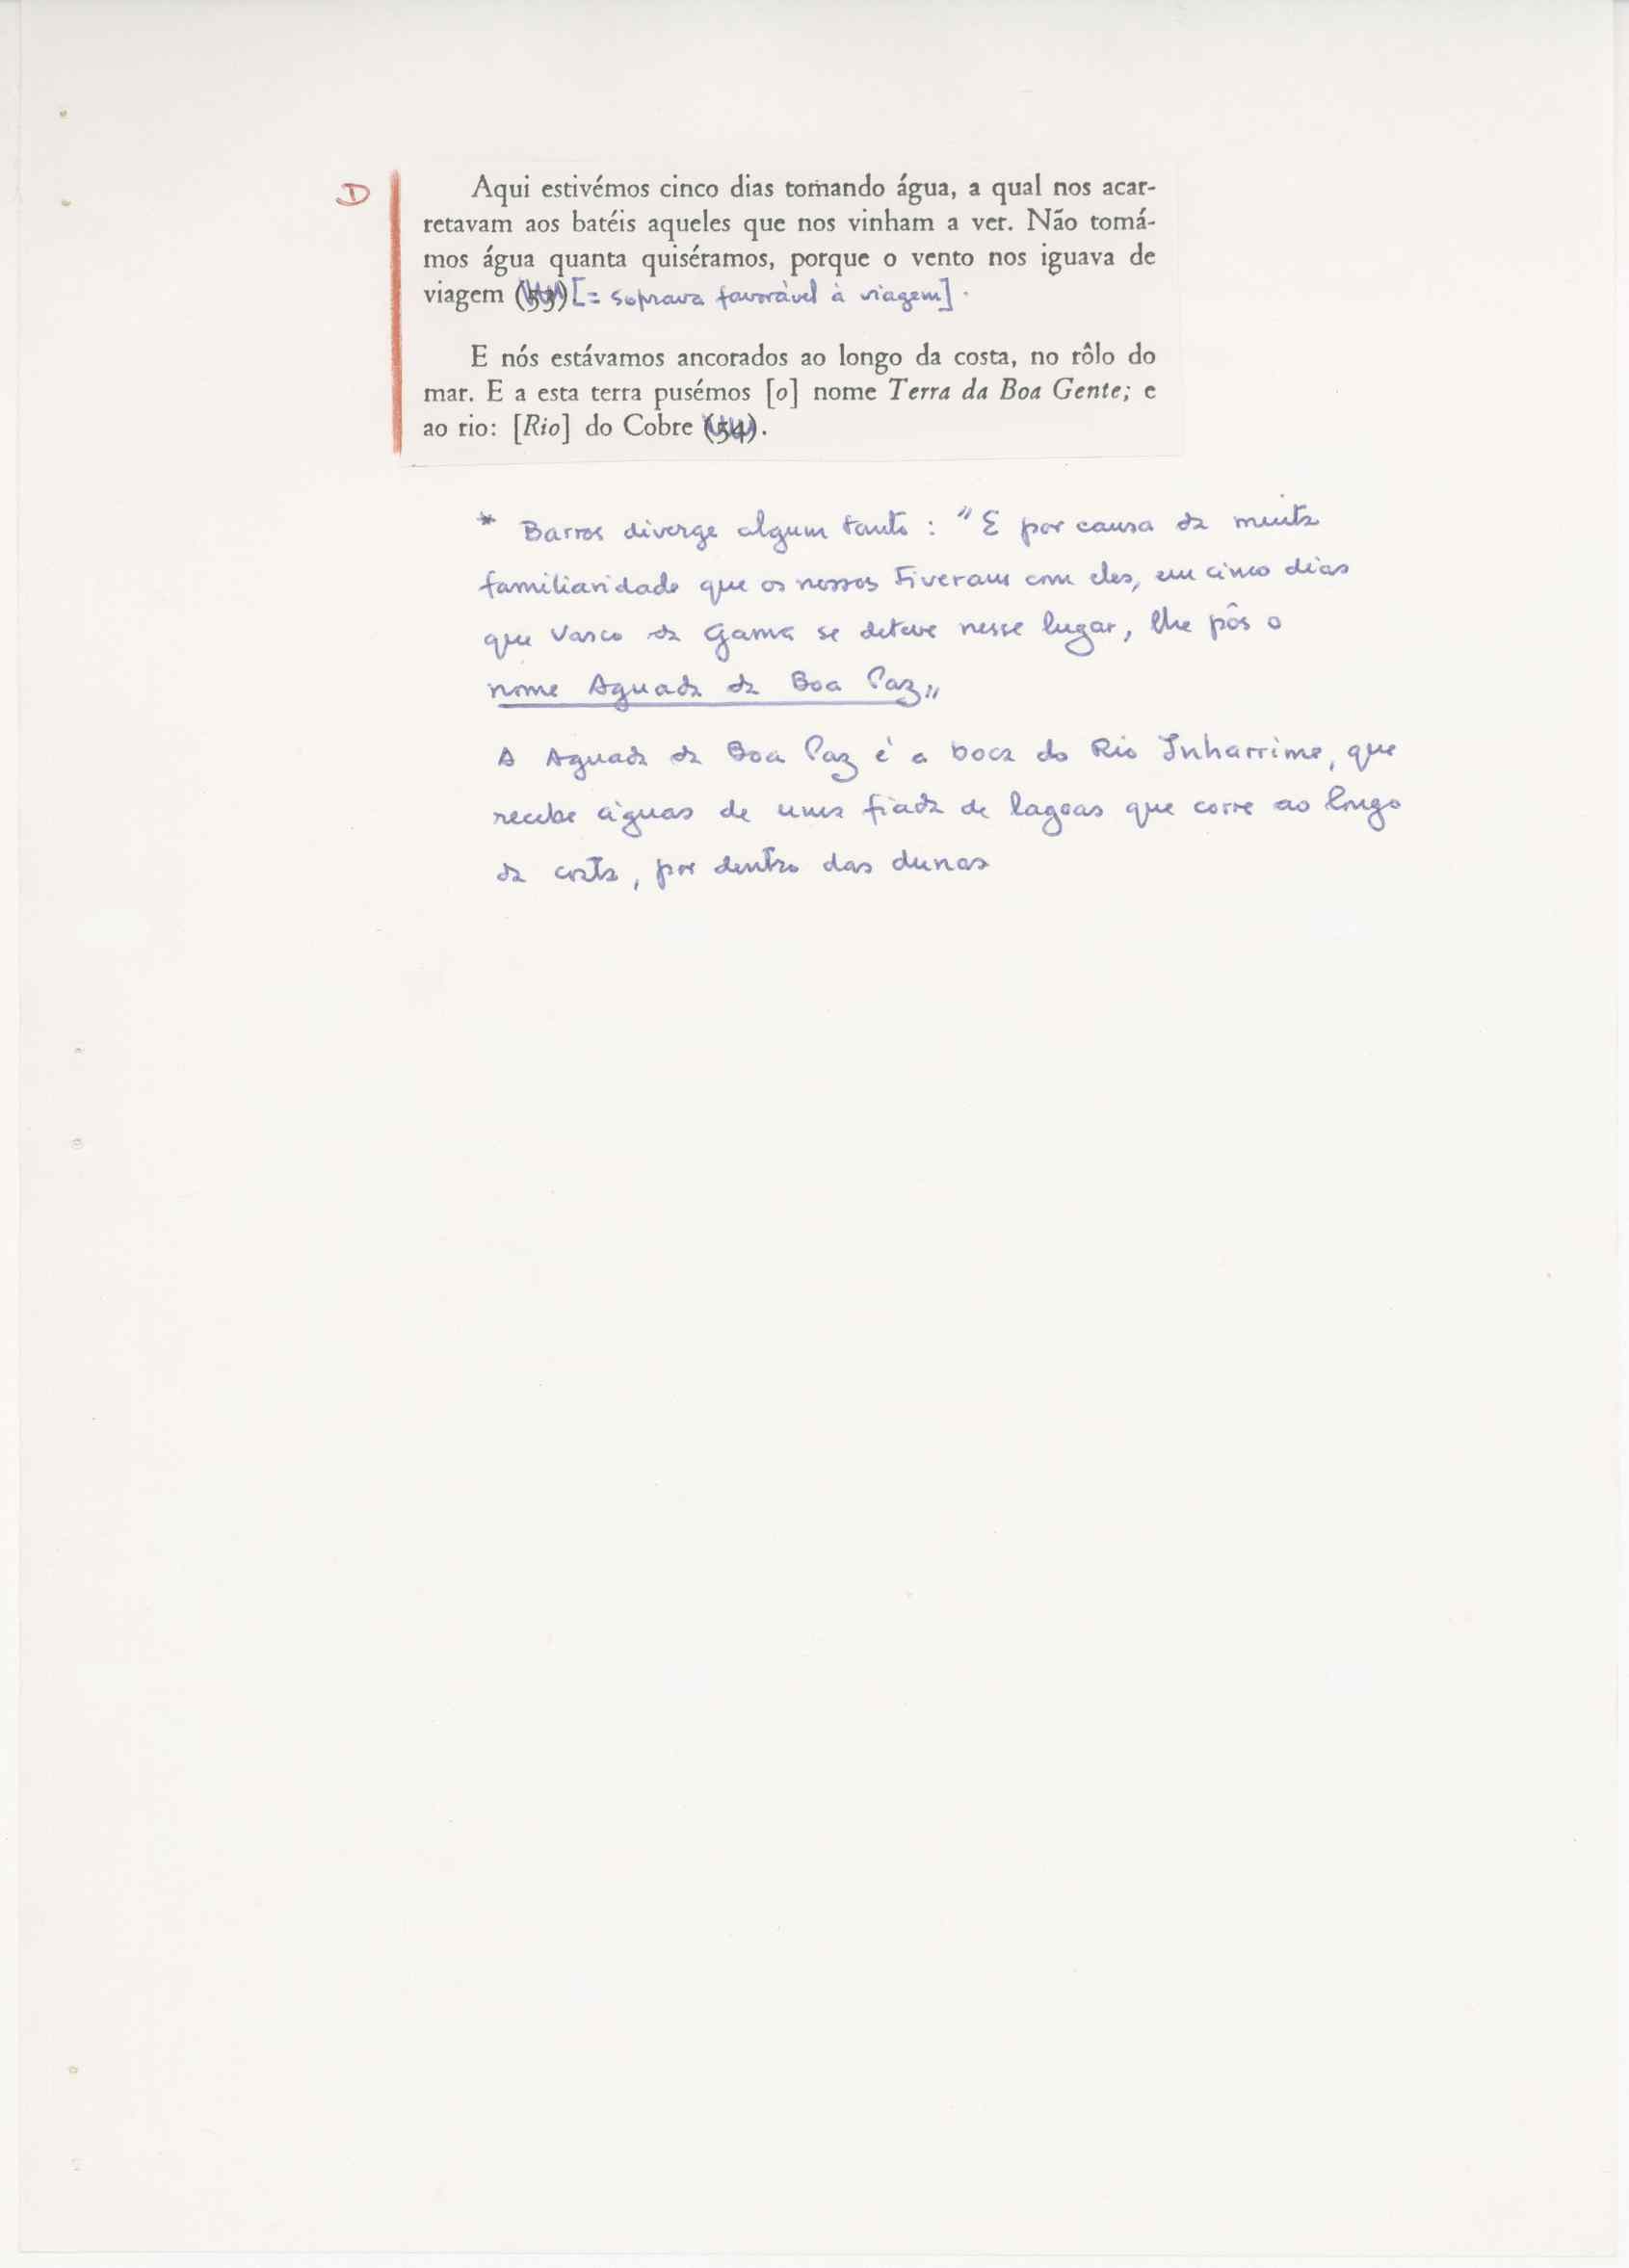 D
Aqui estivémos cinco dias tomando água, a qual nos acar-
retavam aos batéis aqueles que nos vinham a ver. Não tomá-
mos água quanta quiséramos, porque o vento nos iguava de
viagem (53) [= soprava favorável à viagem].
E nós estávamos ancorados ao longo da costa, no rôlo do
mar. E a esta terra pusémos [o] nome Terra da Boa Gente; e
ao rio: [Rio] do Cobre (54).
* Barros diverge algum tanto : "E por causa da muita
familiaridade que os nossos tiveram com eles, em cinco dias
que Vasco da Gama se deteve nesse lugar, lhe pôs o
nome Aguada da Boa Paz"
A Aguada da Boa Paz é a boca do Rio Inharrime, que
recebe águas de uma fiada de lagoas que corre ao longo
da costa, por dentro das dunas